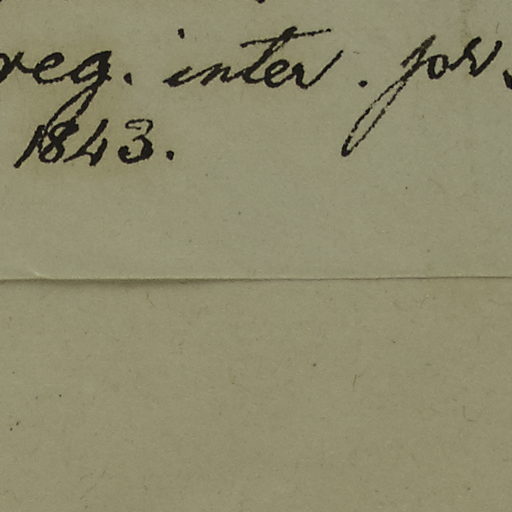 reg. inter. por.
1843.